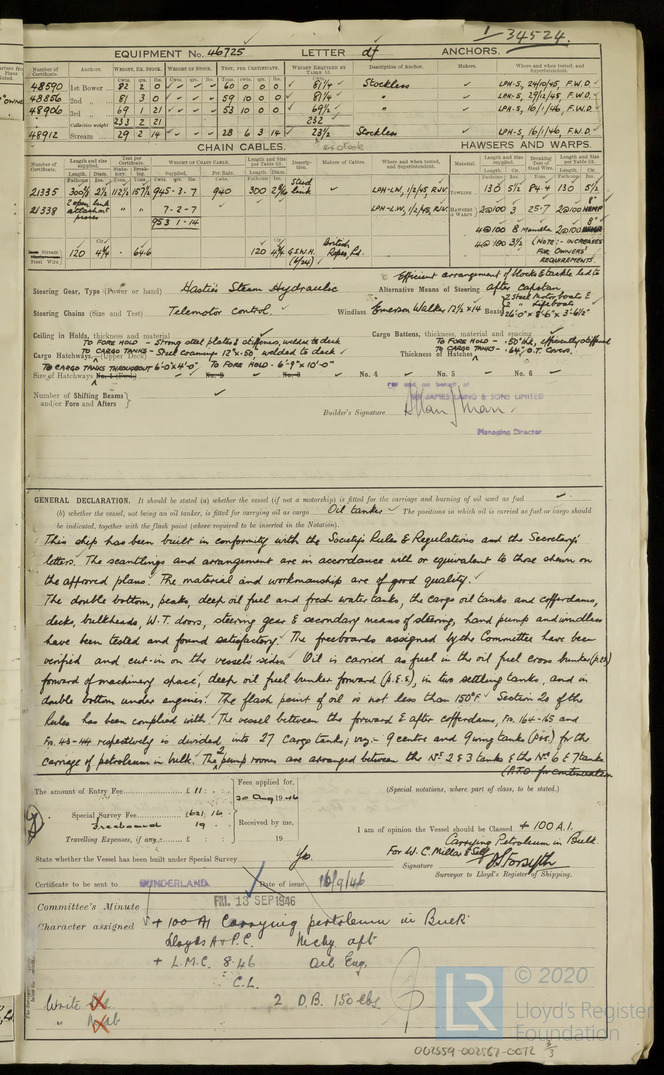 1/34524.
EQUIPMENT No. 46725 LETTER d† ANCHORS.
Number of Certificate. Anchors. Weight, Ex. Stock. Weight of Stock. Test, per Certificate. Weight Required by Table 53. Description of Anchor. Makers. Where and when tested, and Superintendent.
Cwts. qrs. lbs. Cwts. qrs. lbs. Tons. cwts. qrs. lbs. Cwts.
48590 1st Bower 82 2 0 60 0 0 0 81 1/4 Stockless LPH-S, 24/10/45, F.W.D
48856 2nd " 81 3 0 59 10 0 0 81 1/4 " LPH-S, 29/12/45, F.W.D
48906 3rd " 69 1 21 53 10 0 0 69 1/2 " LPH-S, 16/1/46, F.W.D
Collective weight 233 2 21 232
48912 Stream 29 2 14 28 6 3 14 23 1/2 Stockless LPH-S, 16/1/46, F.W.D
CHAIN CABLES. HAWSERS AND WARPS.
Number of Certificate. Length and size supplied. Test per Certificate. Weight of Chain Cable. Length and Size per Table 53. Description. Makers of Cables. Where and when tested, and Superintendent. Material. Length and size supplied. Breaking Test of Steel Wire. Length and Size per Table 53.
21335 945-3-7 940 300 Stud link LPH-LW, 1/2/45, RJV. Towline 130 5 1/2 130 5 1/2
21338 2 open link attachment pieces " " 7-2-7 LPH-LW, 1/2/45, RJV. Hawsers & Warps 2@100 3 25-7 2@100 8" HEMP
953 1-14 4@100 8 Manilla 2@100 8"
Stream Steel Wire 120 4 3/4 - 64.6 120 4 3/4 G.S.W.H. (6/24) British Ropes, Ld. 4@100 3 1/2 (NOTE:- INCREASES FOR OWNERS' REQUIREMENTS.
Steering Gear, Type (Power or hand) Hasties Steam Hydraulic Alternative Means of Steering Efficient arrangement of blocks & tackle led to after capstan
Steering Chains (Size and Test) Telemotor control. Windlass Emerson Walker 12 1/2 x 14 Boats 2 Steel Motor boats & 2 " Lifeboats 26'-0" x 8'-6" x 3'-6 1/2"
Ceiling in Holds, thickness and material Cargo Battens, thickness, material and spacing
TO FORE HOLD - Strong steel plates & stiffeners, welded to deck TO FORE HOLD - .50" thk, efficiently stiffened
Cargo Hatchways. (Upper Deck) TO CARGO TANKS - Steel coamings 12" x .50", welded to deck Thickness of Hatches TO CARGO TANKS - .64", O.T. Covers.
TO CARGO TANKS THROUGHOUT 6'-0" x 4'-0" TO FORE HOLD - 6'-9" x 10'-0"
Size of Hatchways No. 1 (Fwd.) No. 2 No. 3 No. 4 No. 5 No. 6
Number of Shifting Beams and/or Fore and Afters
FOR AND ON BEHALF OF
SIR JAMES LAING & SONS LIMITED
Builder's Signature
Managing Director
GENERAL DECLARATION. It should be stated (a) whether the vessel (if not a motorship) is fitted for the carriage and burning of oil used as fuel
(b) whether the vessel, not being an oil tanker, is fitted for carrying oil as cargo Oil tanker The positions in which oil is carried as fuel or cargo should
be indicated, together with the flash point (where required to be inserted in the Notation).
This ship has been built in conformity with the Society's Rules & Regulations and the Secretary's
letters. The scantlings and arrangement are in accordance with or equivalent to those shewn on
the approved plans. The material and workmanship are of good quality.
The double bottom, peaks, deep oil fuel and fresh water tanks, the cargo oil tanks and cofferdams,
decks, bulkheads, W.T. doors, steering gear & secondary means of steering, hand pump and windlass
have been tested and found satisfactory. The freeboards assigned by the Committee have been
verified and cut-in on the vessel's sides. Oil is carried as fuel in the oil fuel cross bunker (p&s)
forward of machinery space, deep oil fuel bunker forward (p.&s), in two settling tanks, and in
double bottom under engines. The flash point of oil is not less than 150°F. Section 20 of the
Rules has been complied with. The vessel between the forward & after cofferdams, Fr. 164-165 and
Fr. 43-44 respectively is divided into 27 Cargo tanks; viz:- 9 centre and 9 wing tanks (p&s) for the
carriage of petroleum in bulk. The 2 pump rooms are arranged between the Nos 2 & 3 tanks & the Nos 6 & 7 tanks
(P.T.O. for continuation
The amount of Entry Fee £ 11 Fees applied for, 20 Aug 1946 (Special notations, where part of class, to be stated.)
Special Survey Fee £621. 16 Received by me,
Freeboard 19 I am of opinion the Vessel should be Classed +100 A.I.
Travelling Expenses, if any £ 19 Carrying Petroleum in Bulk
For W.C. Miller & Self
State whether the Vessel has been built under Special Survey Yes. Signature D. Forsyth
Surveyor to Lloyd's Register of Shipping.
Certificate to be sent to SUNDERLAND Date of issue 16/9/46
Committee's Minute FRI. 13 SEP 1946
Character assigned +100 A1 Carrying petroleum in Bulk
Lloyds A & P.C. Mchy aft
+ L.M.C. 8.46 Oil Eng.
C.L.
2 D.B. 150 lbs.
Write
"
LR © 2020
Lloyd's Register
Foundation
002559-002567-0072 3/3